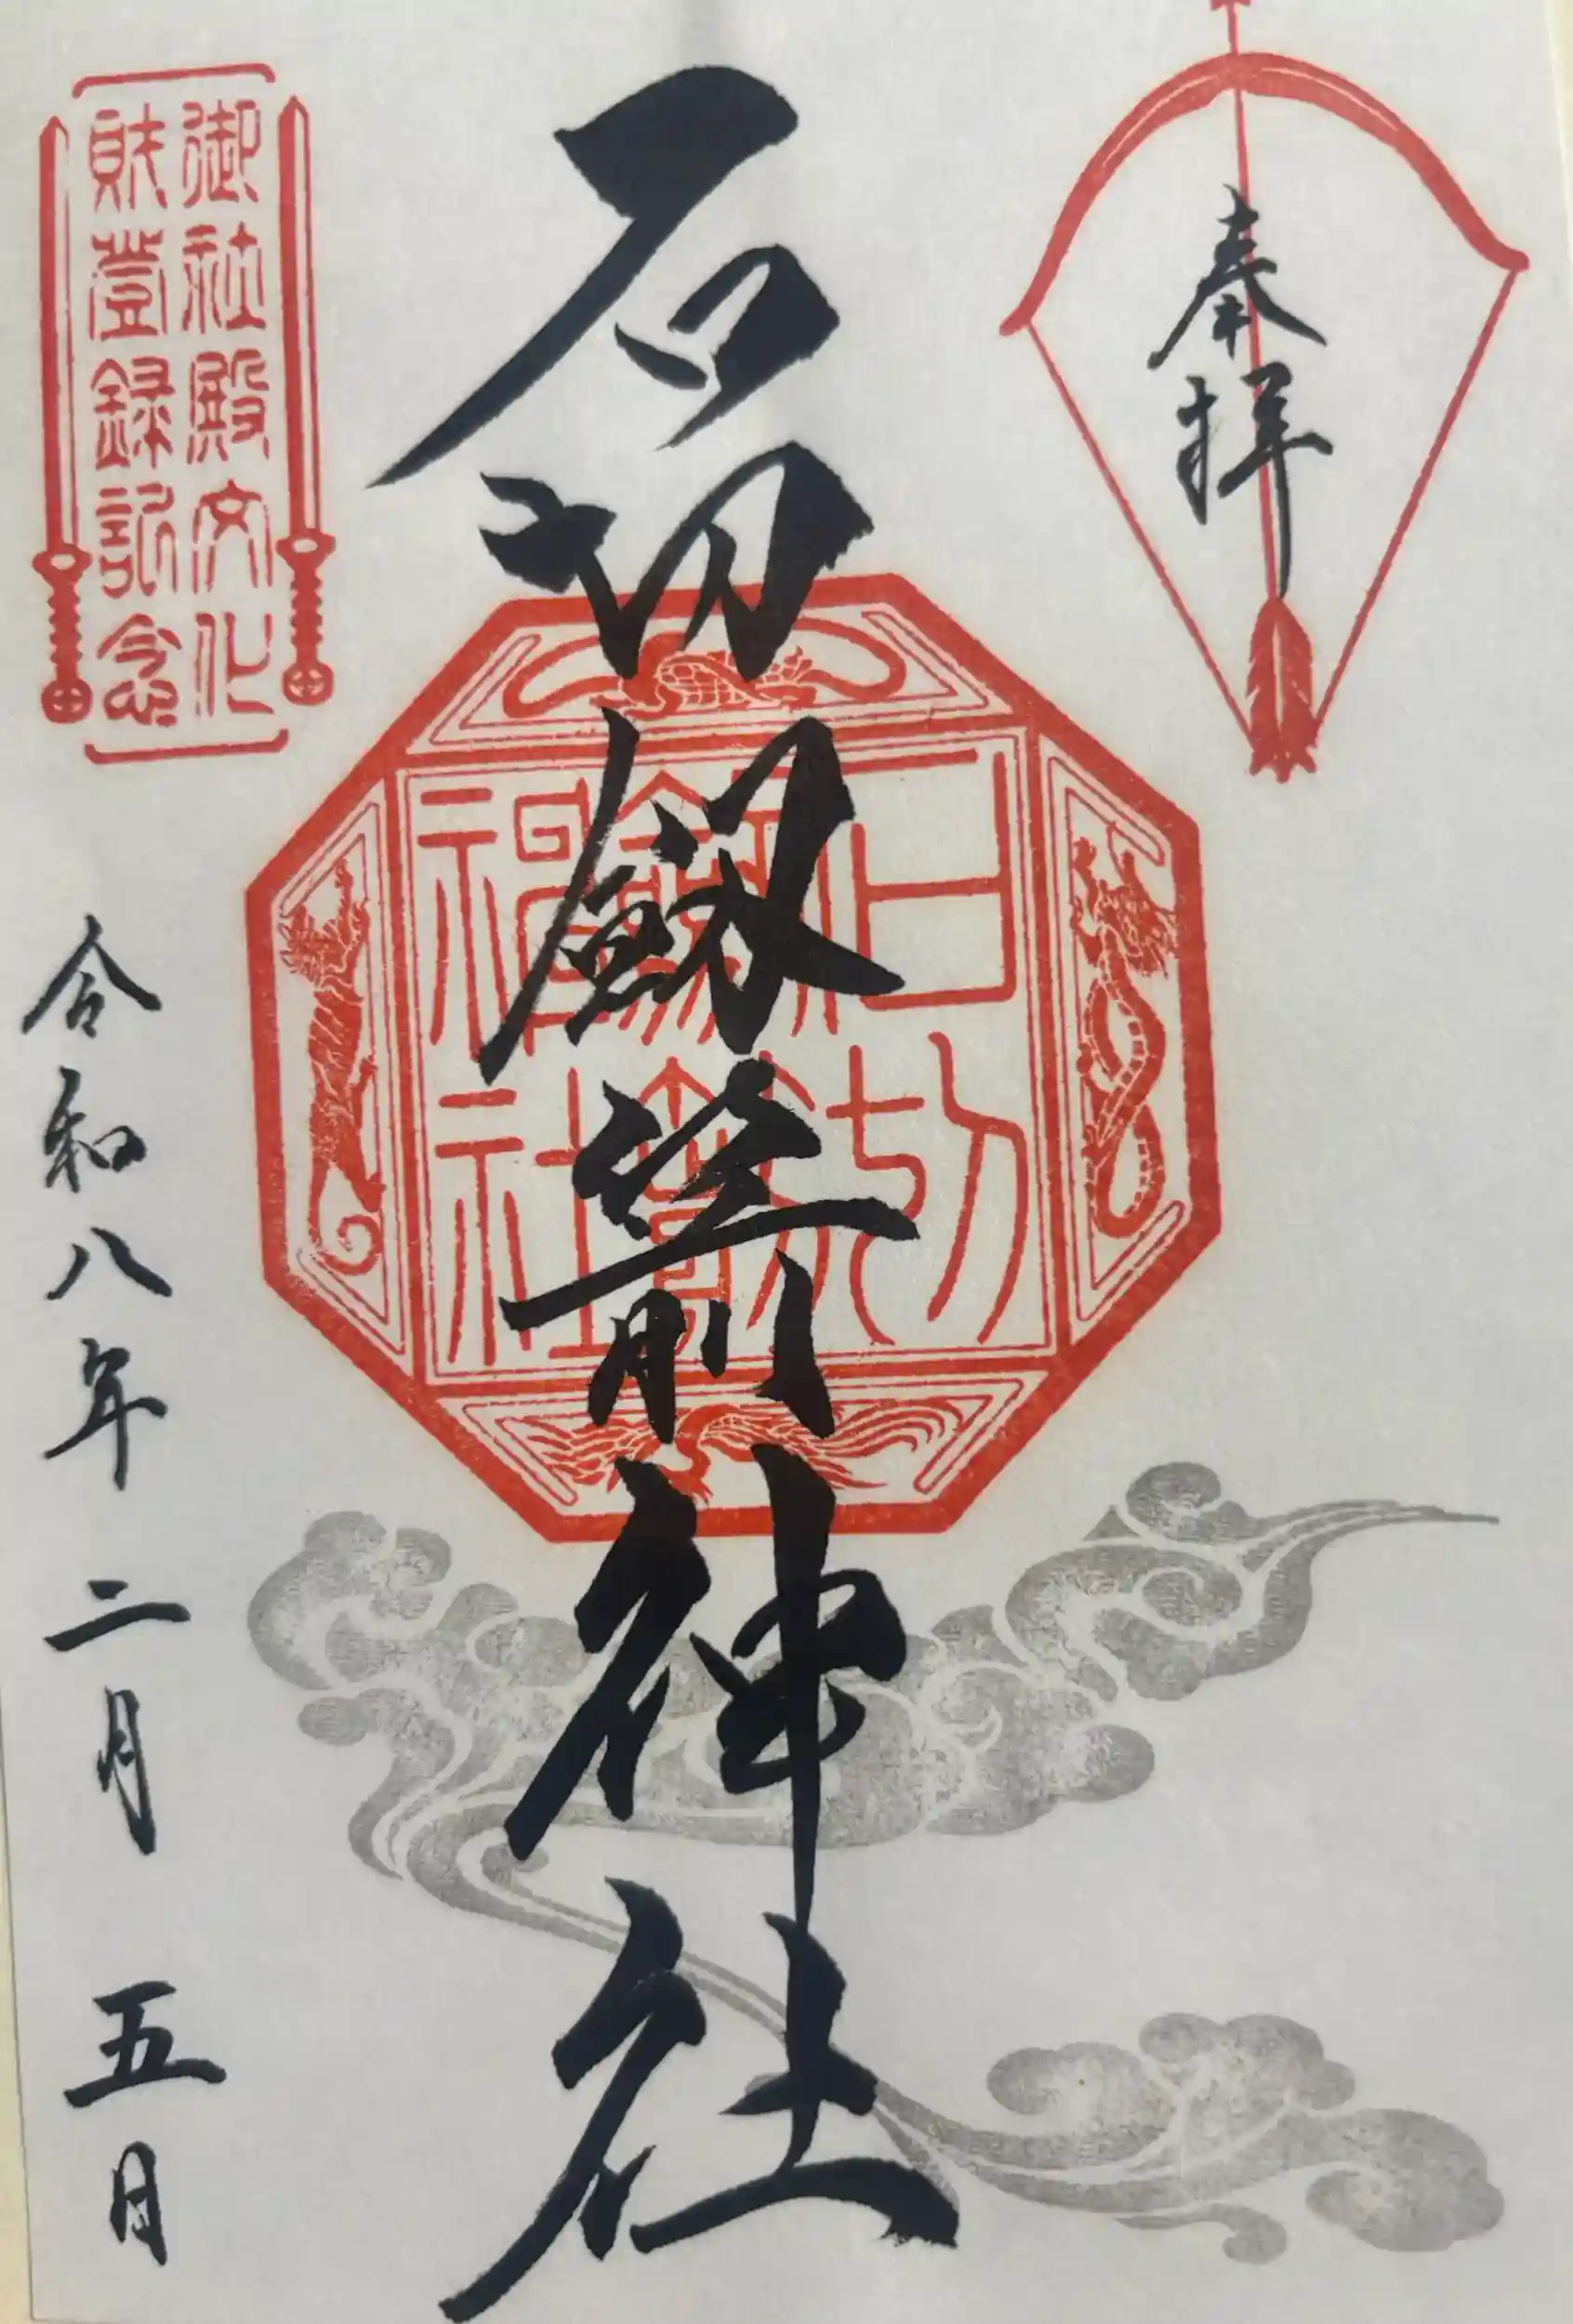 奉拝
石切劔箭神社
石切
劔箭
神社
御社殿文化
財登録記念
令和八年二月五日